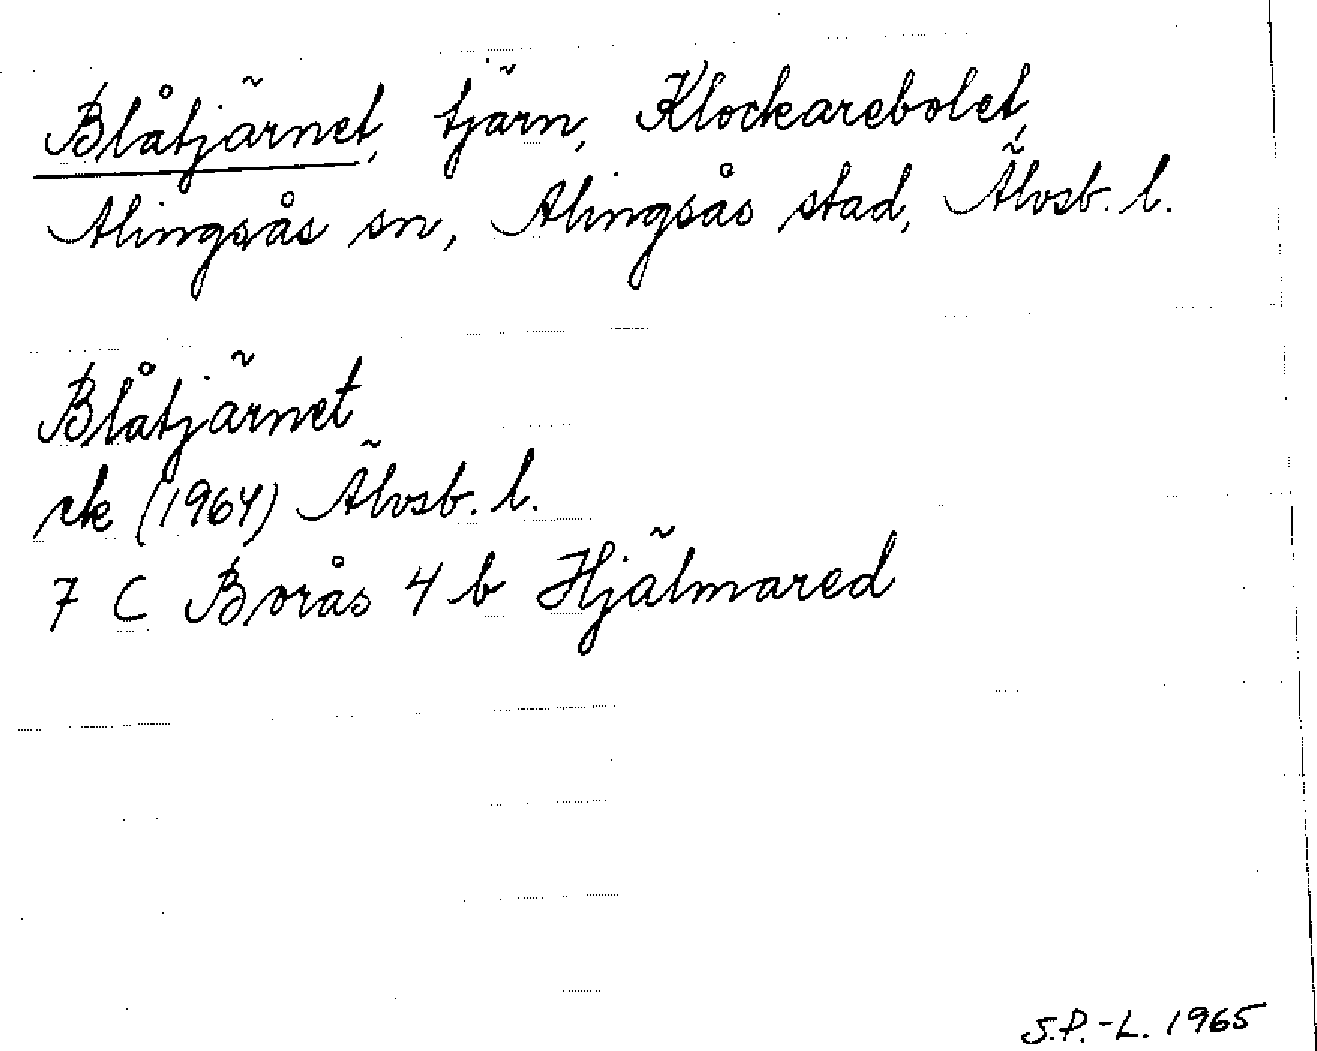 Blåtjärnet, tjärn, Klockarebolet,
Alingsås sn, Alingsås stad, Älvsb. l.
Blåtjärnet
rk (1964) Älvsb. l.
7 C Borås 4 b Hjälmared
S.P.-L. 1965